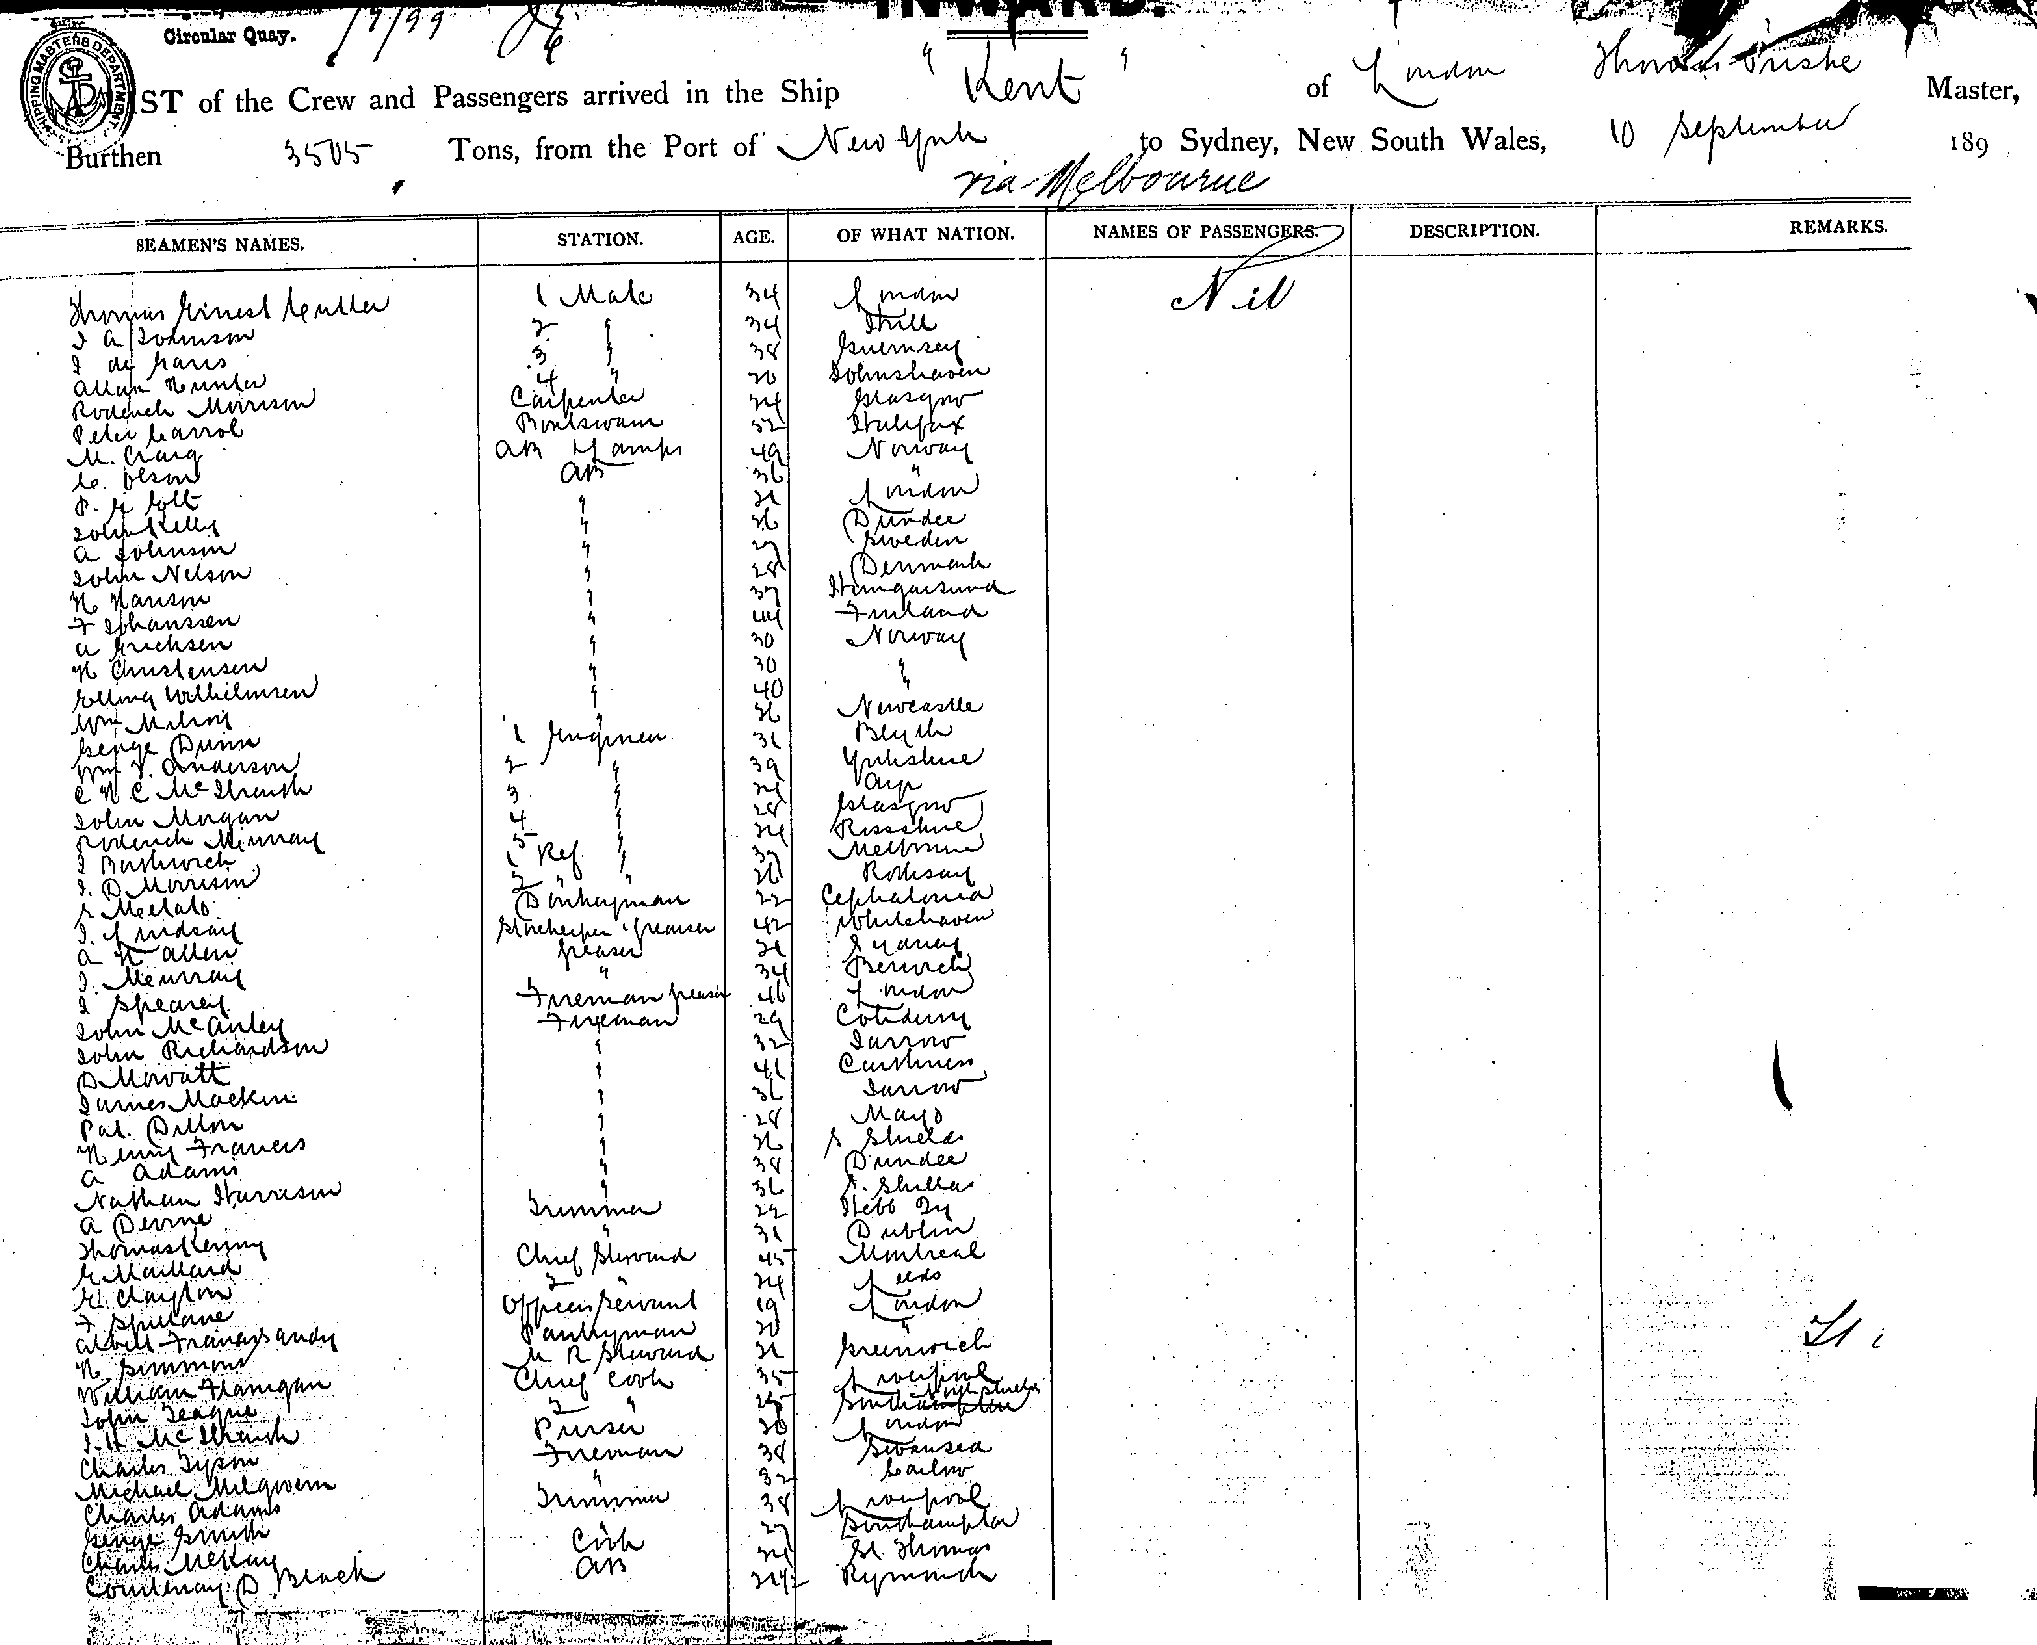 INWARD.
Circular Quay.
SHIPPING MASTERS DEPARTMENT
LIST of the Crew and Passengers arrived in the Ship "Kent" of London Master,
Burthen 3505 Tons, from the Port of New York to Sydney, New South Wales, 10 September 189
via Melbourne
SEAMEN'S NAMES. STATION. AGE. OF WHAT NATION. NAMES OF PASSENGERS. DESCRIPTION. REMARKS.
Thomas Ernest Cutler 1 Mate 34 London Nil
J A Johnson 2 " 34 Hull
J de Garis 3 " 38 Guernsey
Allan Hunter 4 " 20 Johnshaven
Roderick Morrison Carpenter 24 Glasgow
Peter Carrol Boatswain 52 Halifax
M. Craig AB Lamps 49 Norway
C. Olson AB 36 "
P. G Gott " 21 London
John Kelly " 26 Dundee
A Johnson " 27 Sweden
John Nelson " 28 Denmark
H Hanson " 37
F Johanssen " 44 Finland
A Ericksen " 30 Norway
H Christensen " 30 "
Elling Wilhelmsen " 40 "
Wm Milroy 1 Engineer 36 Newcastle
George Dunn 31 Blyth
Wm V. Anderson 2 " 39 Yorkshire
C H C McIlwraith 3 " 24 Ayr
John Morgan 4 " 28 Glasgow
Roderick Murray 5 " 24 Rossshire
J Borthwick 1 Ref. " 37 Melbourne
J. D Morrison 2 " " 26 Rothsay
Donkeyman 22 Cephalonia
J. Lindsay Storekeeper & Greaser 42 Whitehaven
A H Allen Greaser 21 Sydney
J. Murray " 34 Berwick
J Spearey Fireman Greaser 46 London
John McAuley Fireman 29
John Richardson " 32 Jarrow
D Mowatt " 41 Caithness
James Mackin " 36 Jarrow
Pat. Dillon " 28 Mayo
Henry Francis " 26 S Shields
A Adams " 38 Dundee
Nathan Harrison " 36 S. Shields
A Devine Trimmer 22
Thomas Kenny " 31 Dublin
E Maillard Chief Steward 45 Montreal
H. Clayton 2 " 24 Leeds
F Spillane Officers Servant 19 London
Albert Francis Pantryman 20 "
H. Simmons M R Steward 21 Greenwich
William Flanigan Chief Cook 35 Liverpool
John Teague 2 " 25 Southampton
J. H McIlwraith Purser 20 London
Charles Tyson Fireman 38 Swansea
Michael " 32 Carlow
Charles Adams Trimmer 38 Liverpool
George Smith " 27 Southampton
Charles McKay Cook 24 St Thomas
Courtenay D. Black AB 24